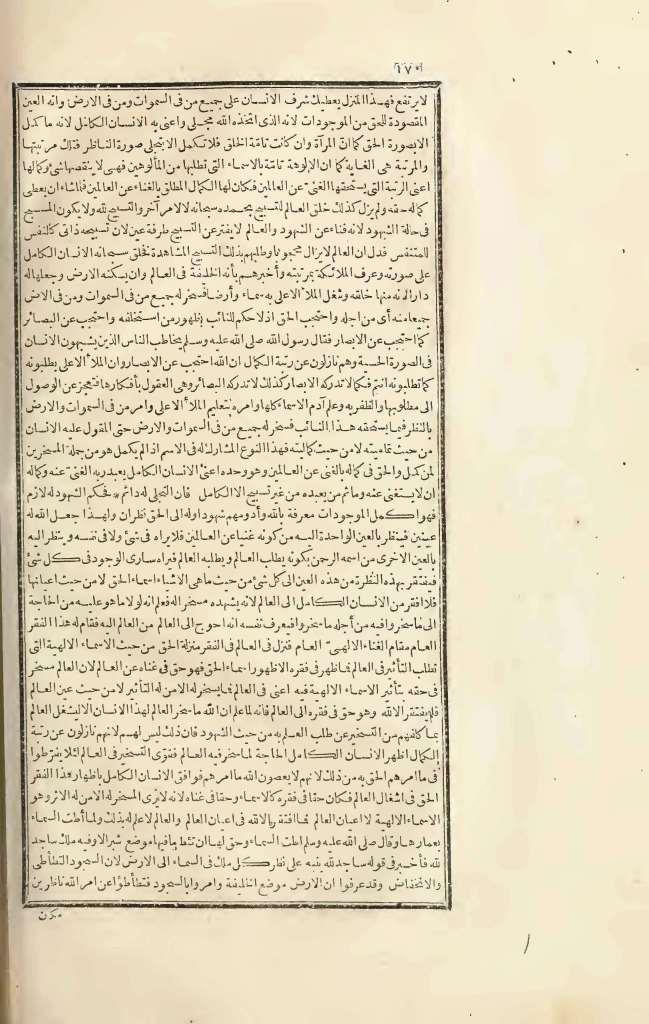 ١٧٩
لا يرتفع فهذا المنزل يعطيك شرف الانسان على جميع من فى السموات ومن فى الارض وانه العين
المقصودة للحق من الموجودات لانه الذى اتخذه الله مجلى واعنى به الانسان الكامل لانه ما كمل
الا بصورة الحق كما ان المرآة وان كانت تامة الخلق فلا تكمل الا بتجلى صورة الناظر فتلك مرتبتها
والمرتبة هى الغاية كما ان الالوهة تامة بالاسماء التى تطلبها من المألوهين فهى لا ينقصها شئ وكمالها
اعنى الرتبة التى يستحقها الغنى عن العالمين فكان لها الكمال المطلق بالغناء عن العالمين فلما شاء ان يعطى
كماله حقه ولم يزل كذلك خلق العالم للتسبيح بحمده سبحانه لا لامر آخر والتسبيح لله ولا يكون المسبح
فى حالة الشهود لانه فناء عن الشهود والعالم لا يفتر عن التسبيح طرفة عين لان تسبيحه ذاتى كالنفس
للمتنفس فدل ان العالم لا يزال محجوبا وطلبهم بذلك التسبيح المشاهدة فخلق سبحانه الانسان الكامل
على صورته وعرف الملائكة بمرتبته وأخبرهم بأنه الخليفة فى العالم وان مسكنه الارض وجعلها له
دارا لانه منها خلقه وشغل الملأ الاعلى به سماء وأرضا فسخر له جميع من فى السموات ومن فى الارض
جميعا منه أى من اجله واحتجب الحق اذ لا حكم للنائب بظهور من استخلفه واحتجب عن البصائر
كما احتجب عن الابصار فقال رسول الله صلى الله عليه وسلم يخاطب الناس الذين يشبهون الانسان
فى الصورة الحسية وهم نازلون عن رتبة الكمال ان الله احتجب عن الابصار وان الملأ الاعلى يطلبونه
كما تطلبونه انتم فكما لا تدركه الابصار كذلك لا تدركه البصائر وهى العقول بأفكارها فتعجز عن الوصول
الى مطلوبها والظفر به وعلم آدم الاسماء كلها وامره بتعليم الملأ الاعلى وامر من فى السموات والارض
بالنظر فيما يستحقه هذا النائب فسخر له جميع من فى السموات والارض حتى المقول عليه الانسان
من حيث تماميته لا من حيث كماليته فهذا النوع المشارك له فى الاسم اذ لم يكمل هو من جملة المسخرين
لمن كمل والحق فى كماله بالغنى عن العالمين وهو وحده اعنى الانسان الكامل يعبد ربه الغنى عنه وكماله
ان لا يستغنى عنه وما ثم من يعبده من غير تسبيح الا الكامل فان التجلى له دائم فحكم الشهود له لازم
فهو اكمل الموجودات معرفة بالله وأدومهم شهودا وله الى الحق نظران ولهذا جعل الله له
عينين فينظر بالعين الواحدة اليه من كونه غنيا عن العالمين فلا يراه فى شئ ولا فى نفسه وينظر اليه
بالعين الاخرى من اسمه الرحمن بكونه يطلب العالم ويطلبه العالم فيراه سارى الوجود فى كل شئ
فيفتقر بهذه النظرة من هذه العين الى كل شئ من حيث ما هى الاشياء اسماء الحق لا من حيث اعيانها
فلا افقر من الانسان الكامل الى العالم لانه يشهده مسخرا له فعلم انه لولا ما هو عليه من الحاجة
الى ما سخروا فيه من أجله ما سخروا فيعرف نفسه انه احوج الى العالم من العالم اليه فقام له هذا الفقر
العام مقام الغناء الالهى العام فنزل فى العالم فى الفقر منزلة الحق من حيث الاسماء الالهية التى
تطلب التأثير فى العالم فما ظهر فى فقره الا ظهور اسماء الحق فهو حق فى غناه عن العالم لان العالم مسخر
فى حقه بتأثير الاسماء الالهية فيه اعنى فى العالم فما يسخر له الا من له التأثير لا من حيث عين العالم
فلم يفتقر الا لله وهو حق فى فقره الى العالم فانه لما علم ان الله ما سخر العالم لهذا الانسان الا ليشغل العالم
بما كلفهم من التسخير عن طلب العلم به من حيث الشهود فان ذلك ليس لهم لانهم نازلون عن رتبة
الكمال اظهر الانسان الكامل الحاجة لما سخر فيه العالم فقوى التسخير فى العالم لئلا يفرطوا
فى ما امرهم الحق به من ذلك لانهم لا يعصون الله ما امرهم فوافق الانسان الكامل باظهار هذا الفقر
الحق فى اشغال العالم فكان حقا فى فقره كالاسماء وحقا فى غناه لانه لا يرى المسخر له الا من له الاثر وهو
الاسماء الالهية لا اعيان العالم فما افتقر الا لله فى اعيان العالم والعالم لا علم له بذلك ولما أطت السماء
بعمارها وقال صلى الله عليه وسلم اطت السماء وحق لها ان تئط ما فيها موضع شبر الا وفيه ملك ساجد
لله فأخبر فى قوله ساجد لله ينبه على نظر كل ملك فى السماء الى الارض لان السجود التطأطى
والانخفاض وقد عرفوا ان الارض موضع الخليفة وامروا بالسجود فتطأطؤا عن امر الله ناظرين